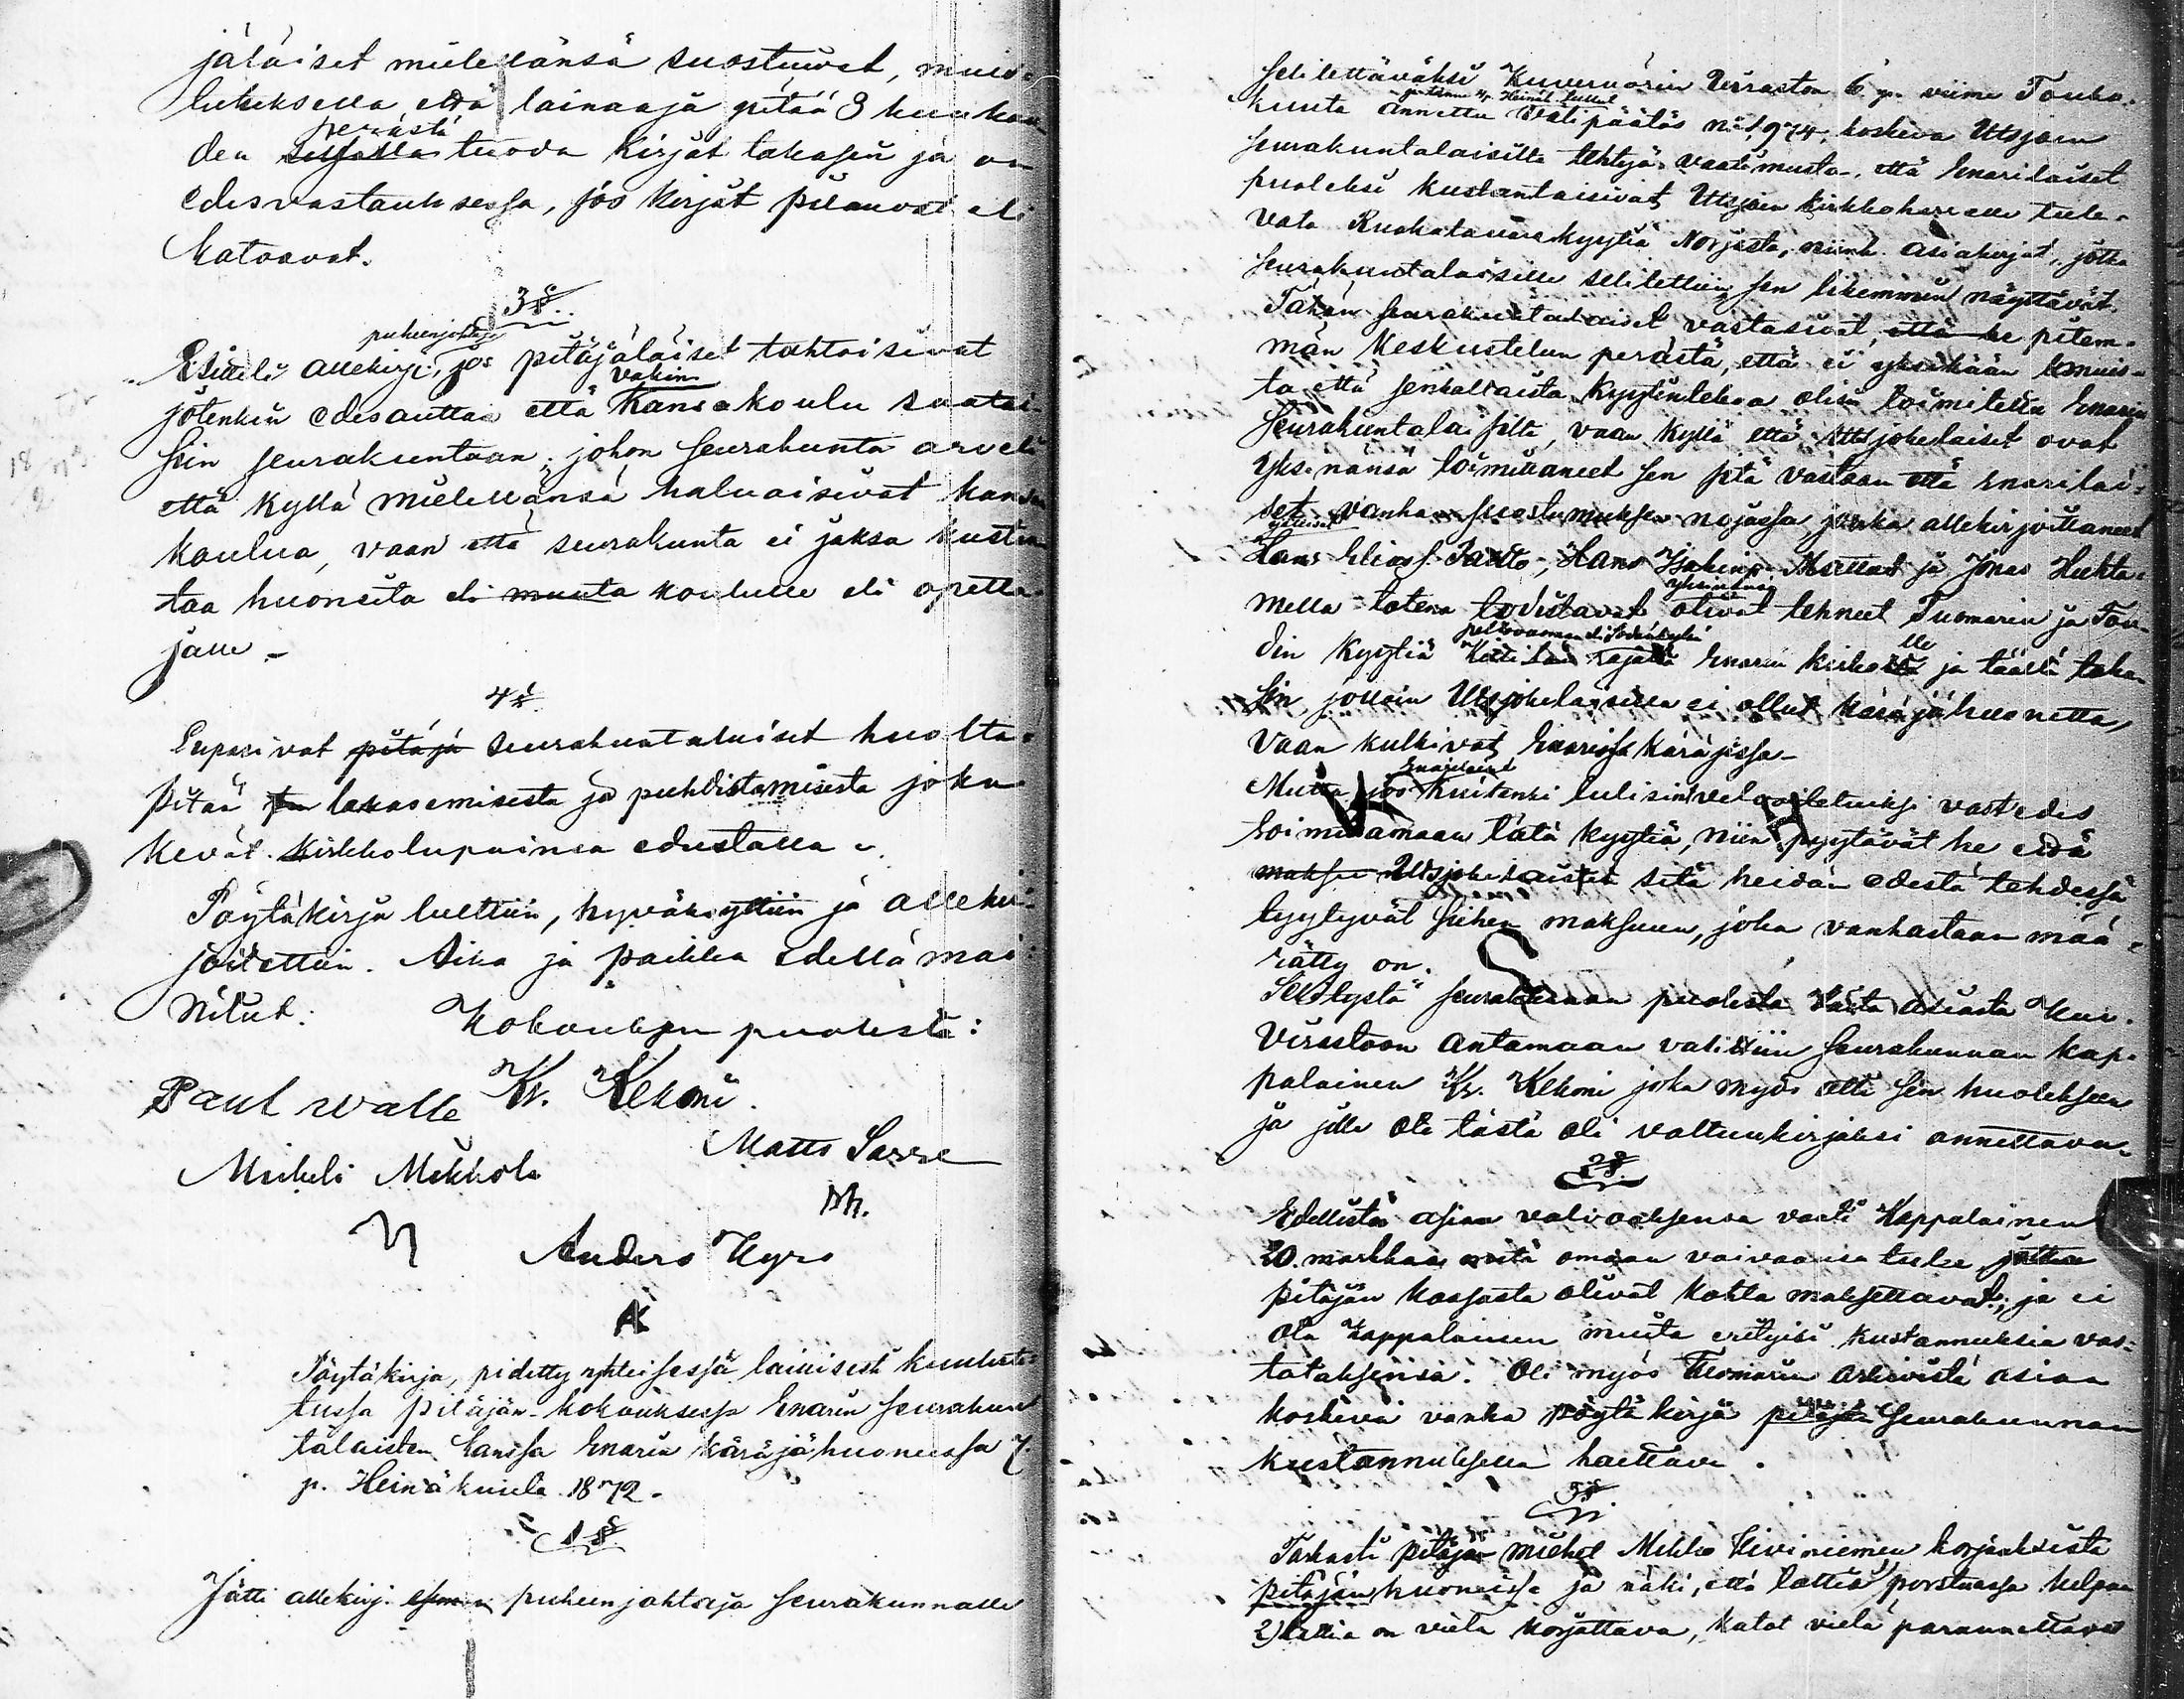 jäläiset mielellänsä suostuivat, muis-
tutuksella että lainaaja pitää 3 kuukau-
perästä
den tuoda kirjat takasin ja on
edesvastauksessa, jos kirjat pilauvat eli
katoavat.
3 §
puheenjohtaja
Esitteli allekirj. jos pitäjäläiset tahtoisivat
vakin.
jotenkin edesauttaa että Kansakoulu saatai-
siin seurakuntaan; johon seurakunta arveli
että kyllä mielellänsä haluaisivat kansa
koulua, vaan että seurakunta ei jaksa kustan
taa huoneita eli muuta koululle eli opetta-
jalle -
4 §
Lupasivat pitäjä seurakuntalaiset huolta
pitää lakasemisesta ja puhdistamisesta joka
kevät kirkkotupainsa edustalla.
Pöytäkirja luettiin, hyväksyttiin ja allekir-
joitettiin. Aika ja paikka edellä mai-
nitut. Kokouksen puolesta:
Paul Walle K. Kekoni.
Mikeli Mikkola Matts Sarre
Anders Kyrö
Pöytäkirja, pidetty yhteisessä laillisesti kuulute-
tussa pitäjän-kokouksessa Enarin seurakunt
talaisten kanssa Enarin käräjähuoneessa 7.
p. Heinäkuuta 1872.
1 §
Jätti allekirj. puheenjohtaja seurakunnalle
selitettäväksi Kuvernörin Viraston 6 p. viime Touko-
kuuta annettu välipäätös No 1,974, koskeva Utsjoen
seurakuntalaisilta tehtyjä vaatimusta, että Enarilaiset
puoleksi kustantaisivat Utsjoen kirkkoherralle tule-
vata Ruokatavarakyytiä Norjasta, niinkuin asiakirjat, jotka
seurakuntalaisille selitettiin sen likemmin näyttävät.
Tähän seurakuntalaiset vastasivat, että he pitem-
män keskustelun perästä, että ei yksikään muis-
ta että senkaltaista kyytintekoa olisi toimitettu Enarin
seurakuntalaisilta, vaan kyllä että Utsjokelaiset ovat
yksinänsä toimittaneet sen sitä vastaan että Enarilai-
set vanhan suostumuksen nojassa, jonka allekirjoittaneet
Hans Elias Paltto, Hans ja Jonas Huhta-
mella totena todistavat olivat tehneet Tuomarin ja Fou-
din kyytiä Kittilän rajalta Enarin kirkolle ja täältä taka-
sin, jolloin Utsjokelaisilla ei ollut käräjähuonetta,
vaan kulkivat Enarissa käräjissä.
Enarilaiset
Mutta jos kuitenki tulisivat velvoitetuiksi vastedes
toimittamaan tätä kyytiä, niin pyytävät he että
maksu Utsjokelaiset sitä heidän edestä tehdessä
tyytyvät siihen maksuun, joka vanhastaan mää-
rätty on.
Selitystä seurakunnan puolesta tästä asiasta Kuv.
Virastoon antamaan valittiin seurakunnan kap-
palainen K. Kekoni joka myös otti sen huoleksensa
ja jolle ote tästä oli valtuukirjaksi annettava.
2 §
Edellistä asiaa valvoaksensa vaati Kappalainen
20 markkaa omaan vaivaansa
pitäjän kassasta olivat kohta maksettavat; ja ei
ota kappalainen muita erityisi kustannuksia vas-
tataksensa. Oli myös Tuomarin Arkivista asiaa
koskeva vanha pöytäkirja pitäjän seurakunnan
kustannuksella haettava.
3 §
Tarkasti pitäjän miehet Mikko Kiviniemen korjauksista
pitäjän huoneissa ja näki, että lattia porstuassa
2) lattia on vielä korjattava, katot vielä parannettavat